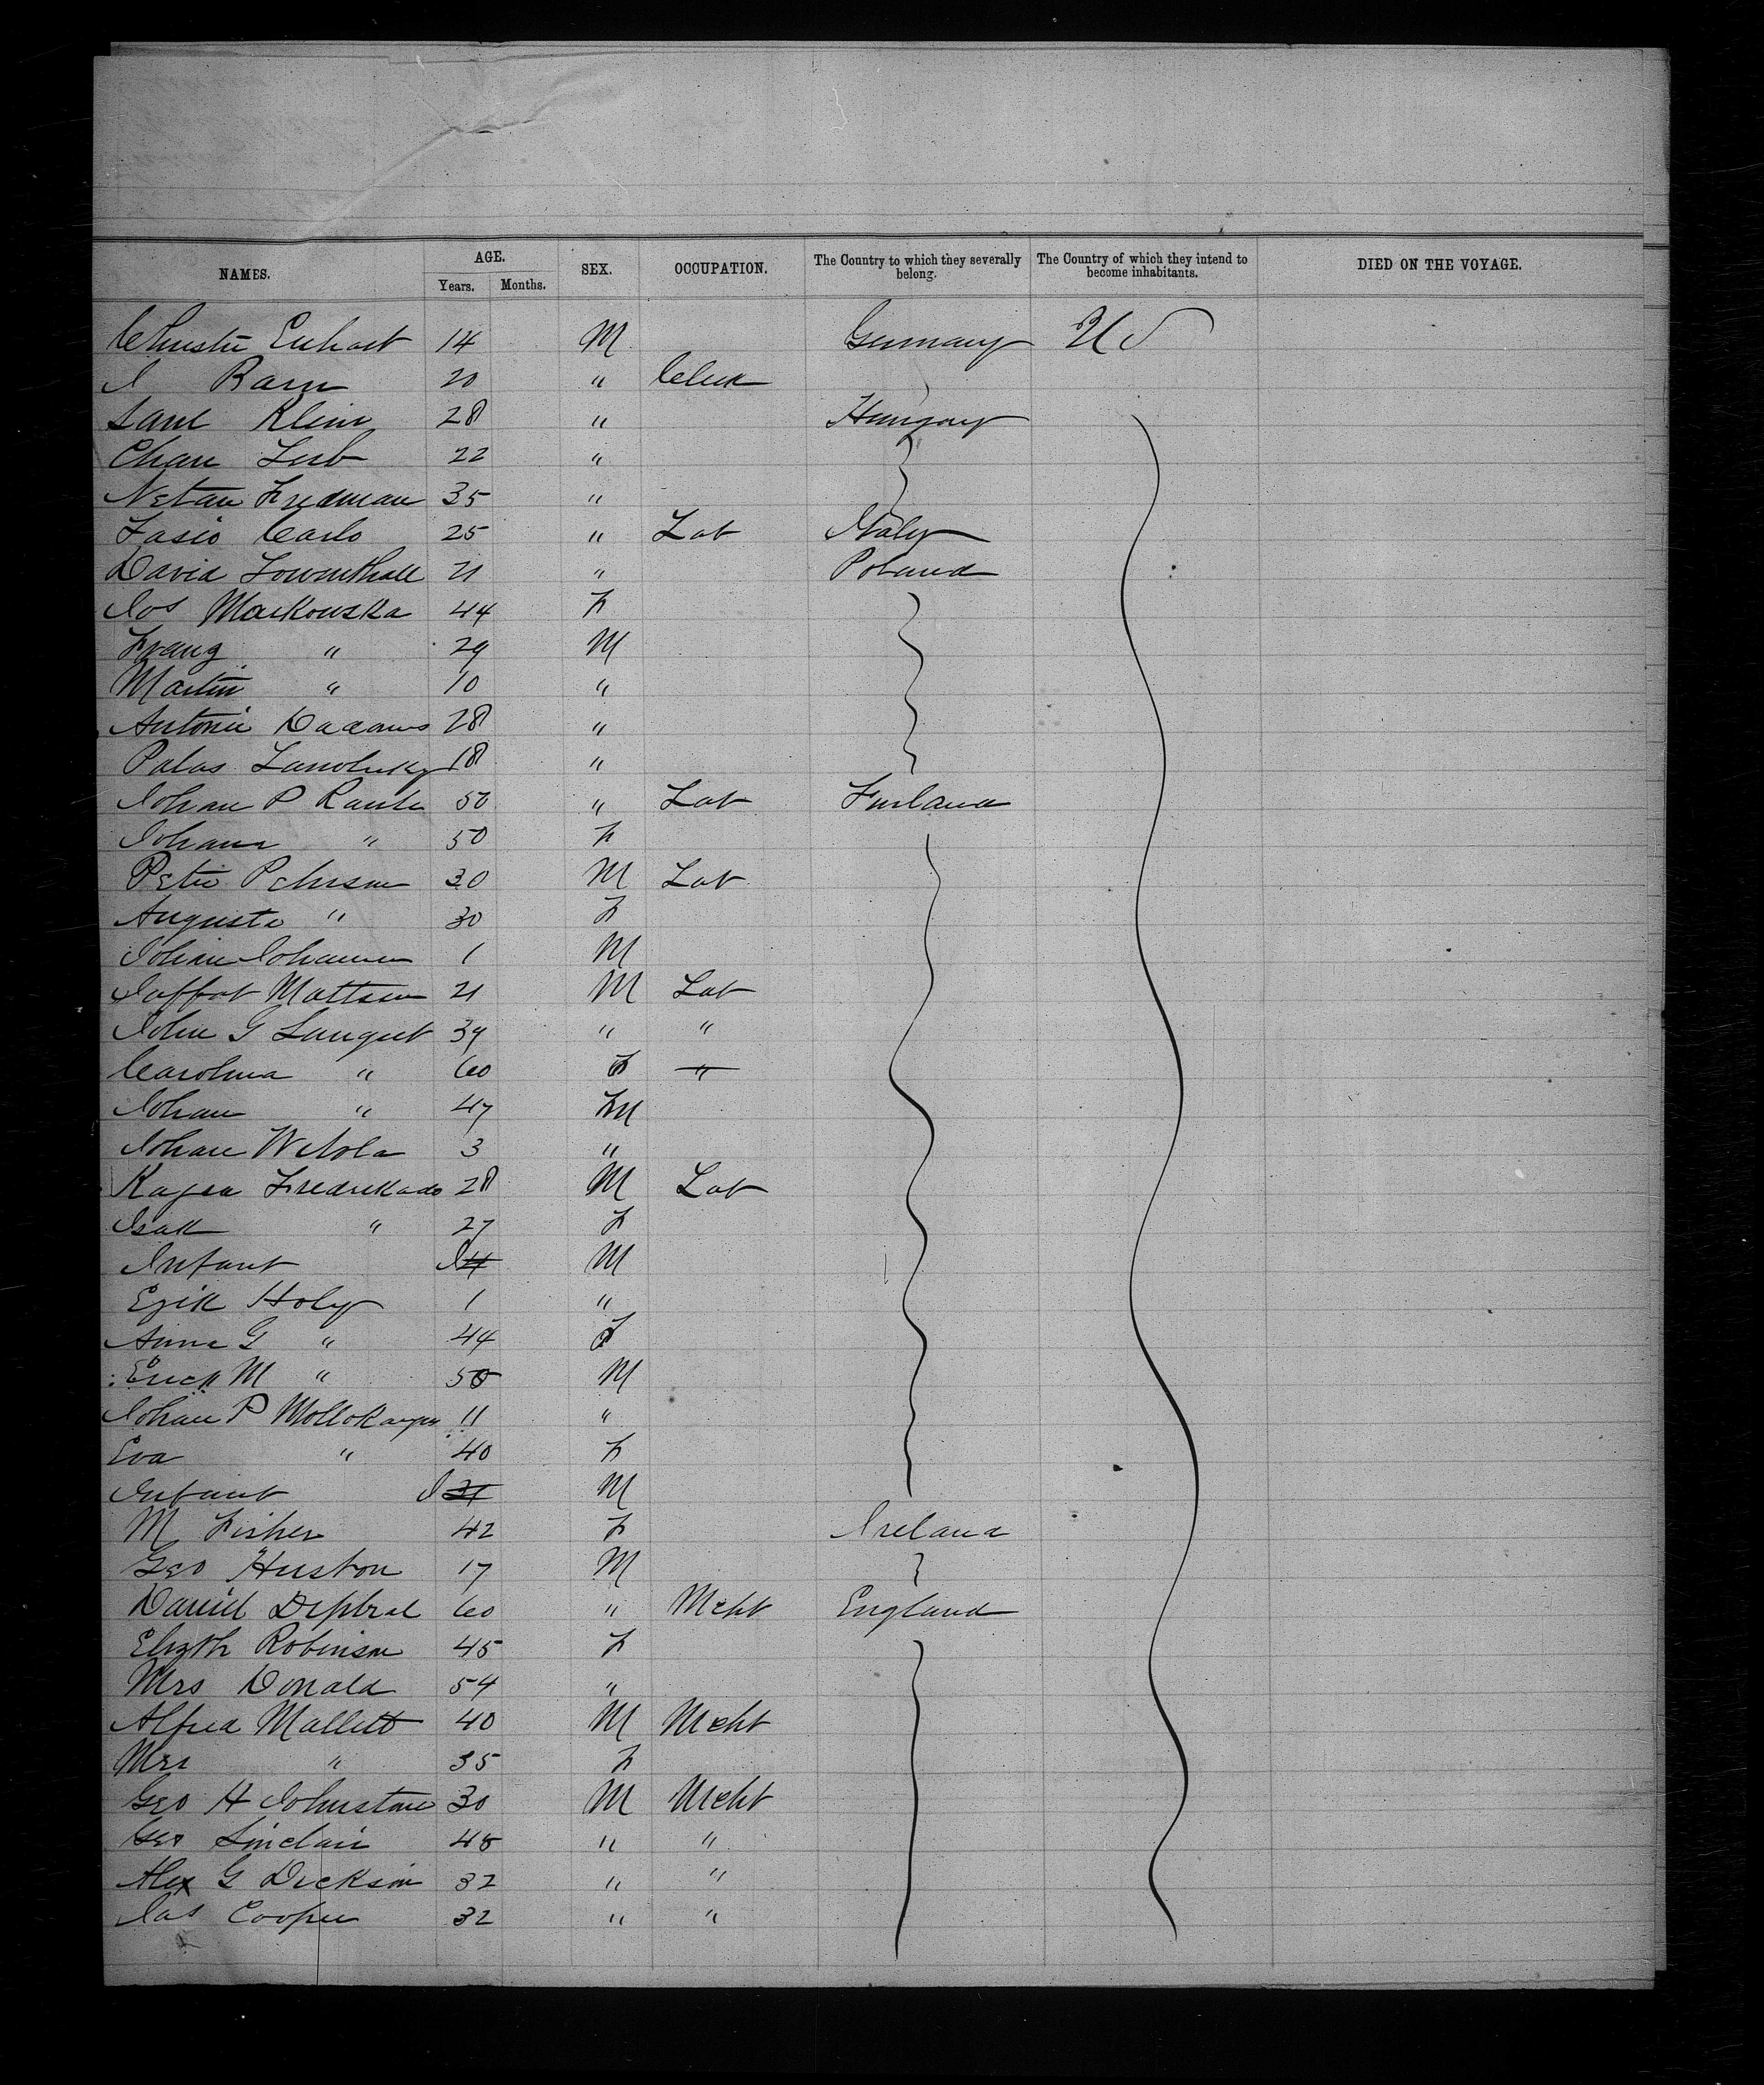 NAMES. AGE. Years. Months. SEX. OCCUPATION. The Country to which they severally belong. The Country of which they intend to become inhabitants. DIED ON THE VOYAGE.
Christie 14 M Germany US
I 20 " Clerk
Saml Klein 28 " Hungary
22 "
Netan Fredman 35 "
Fasio Carlo 25 " Lab Italy
David Lowenthall 21 " Poland
Jos Markowska 44 F
Franz " 29 M
Martin " 10 "
Antonie 28 "
Palas 18 "
Johan P 50 " Lab Finland
Johana " 50 F
Peter Peterson 30 M Lab
Augusta " 30 F
Johan 1 M
Mattson 21 M Lab
John G 39 " "
Carolina " 60 F "
Johan " 47 M
Johan 3 "
Kajsa 28 M Lab
Isak " 27 F
Infant I 4 M
Ezik Holy 1 "
Anna G " 44 F
Erick M " 50 M
Johan P 11 "
Eva " 40 F
Infant I 31 M
M Fisher 42 F Ireland
Geo Huston 17 M
Daniel 60 " Mcht England
Elizth Robinson 45 F
Mrs Donald 54 "
Alfred Mallett 40 M Mcht
Mrs " 35 F
Geo H Johnstone 30 M Mcht
Geo Sinclair 45 " "
Alex G Dickson 32 " "
Jas Cooper 32 " "